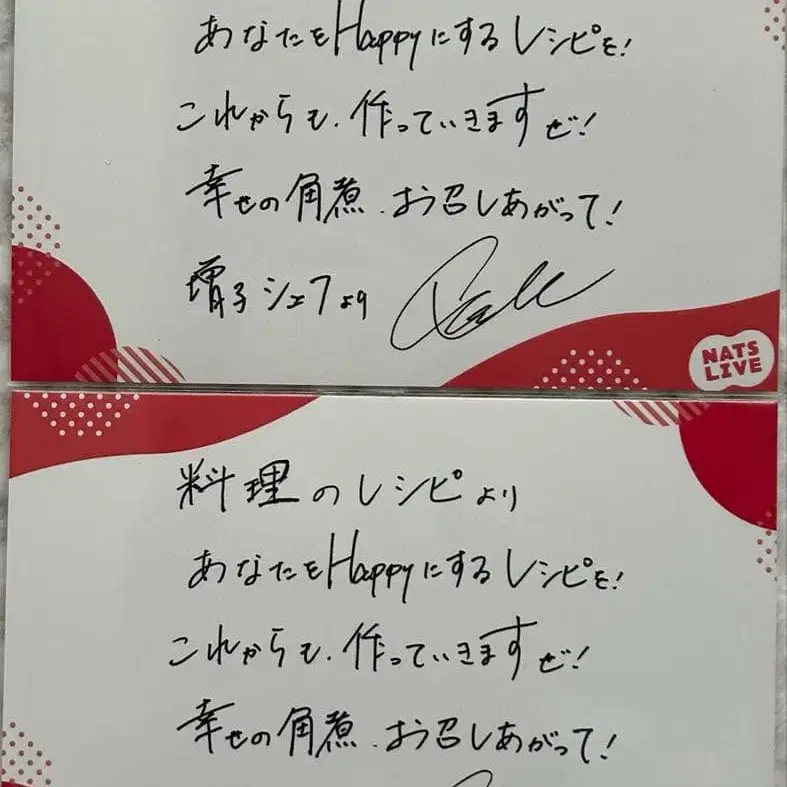 あなたをHappyにするレシピを!
これからも、作っていきますぜ!
幸せの角煮、お召しあがって!
増子シェフより
NATS
LIVE
料理のレシピより
あなたをHappyにするレシピを!
これからも、作っていきますぜ!
幸せの角煮、お召しあがって!